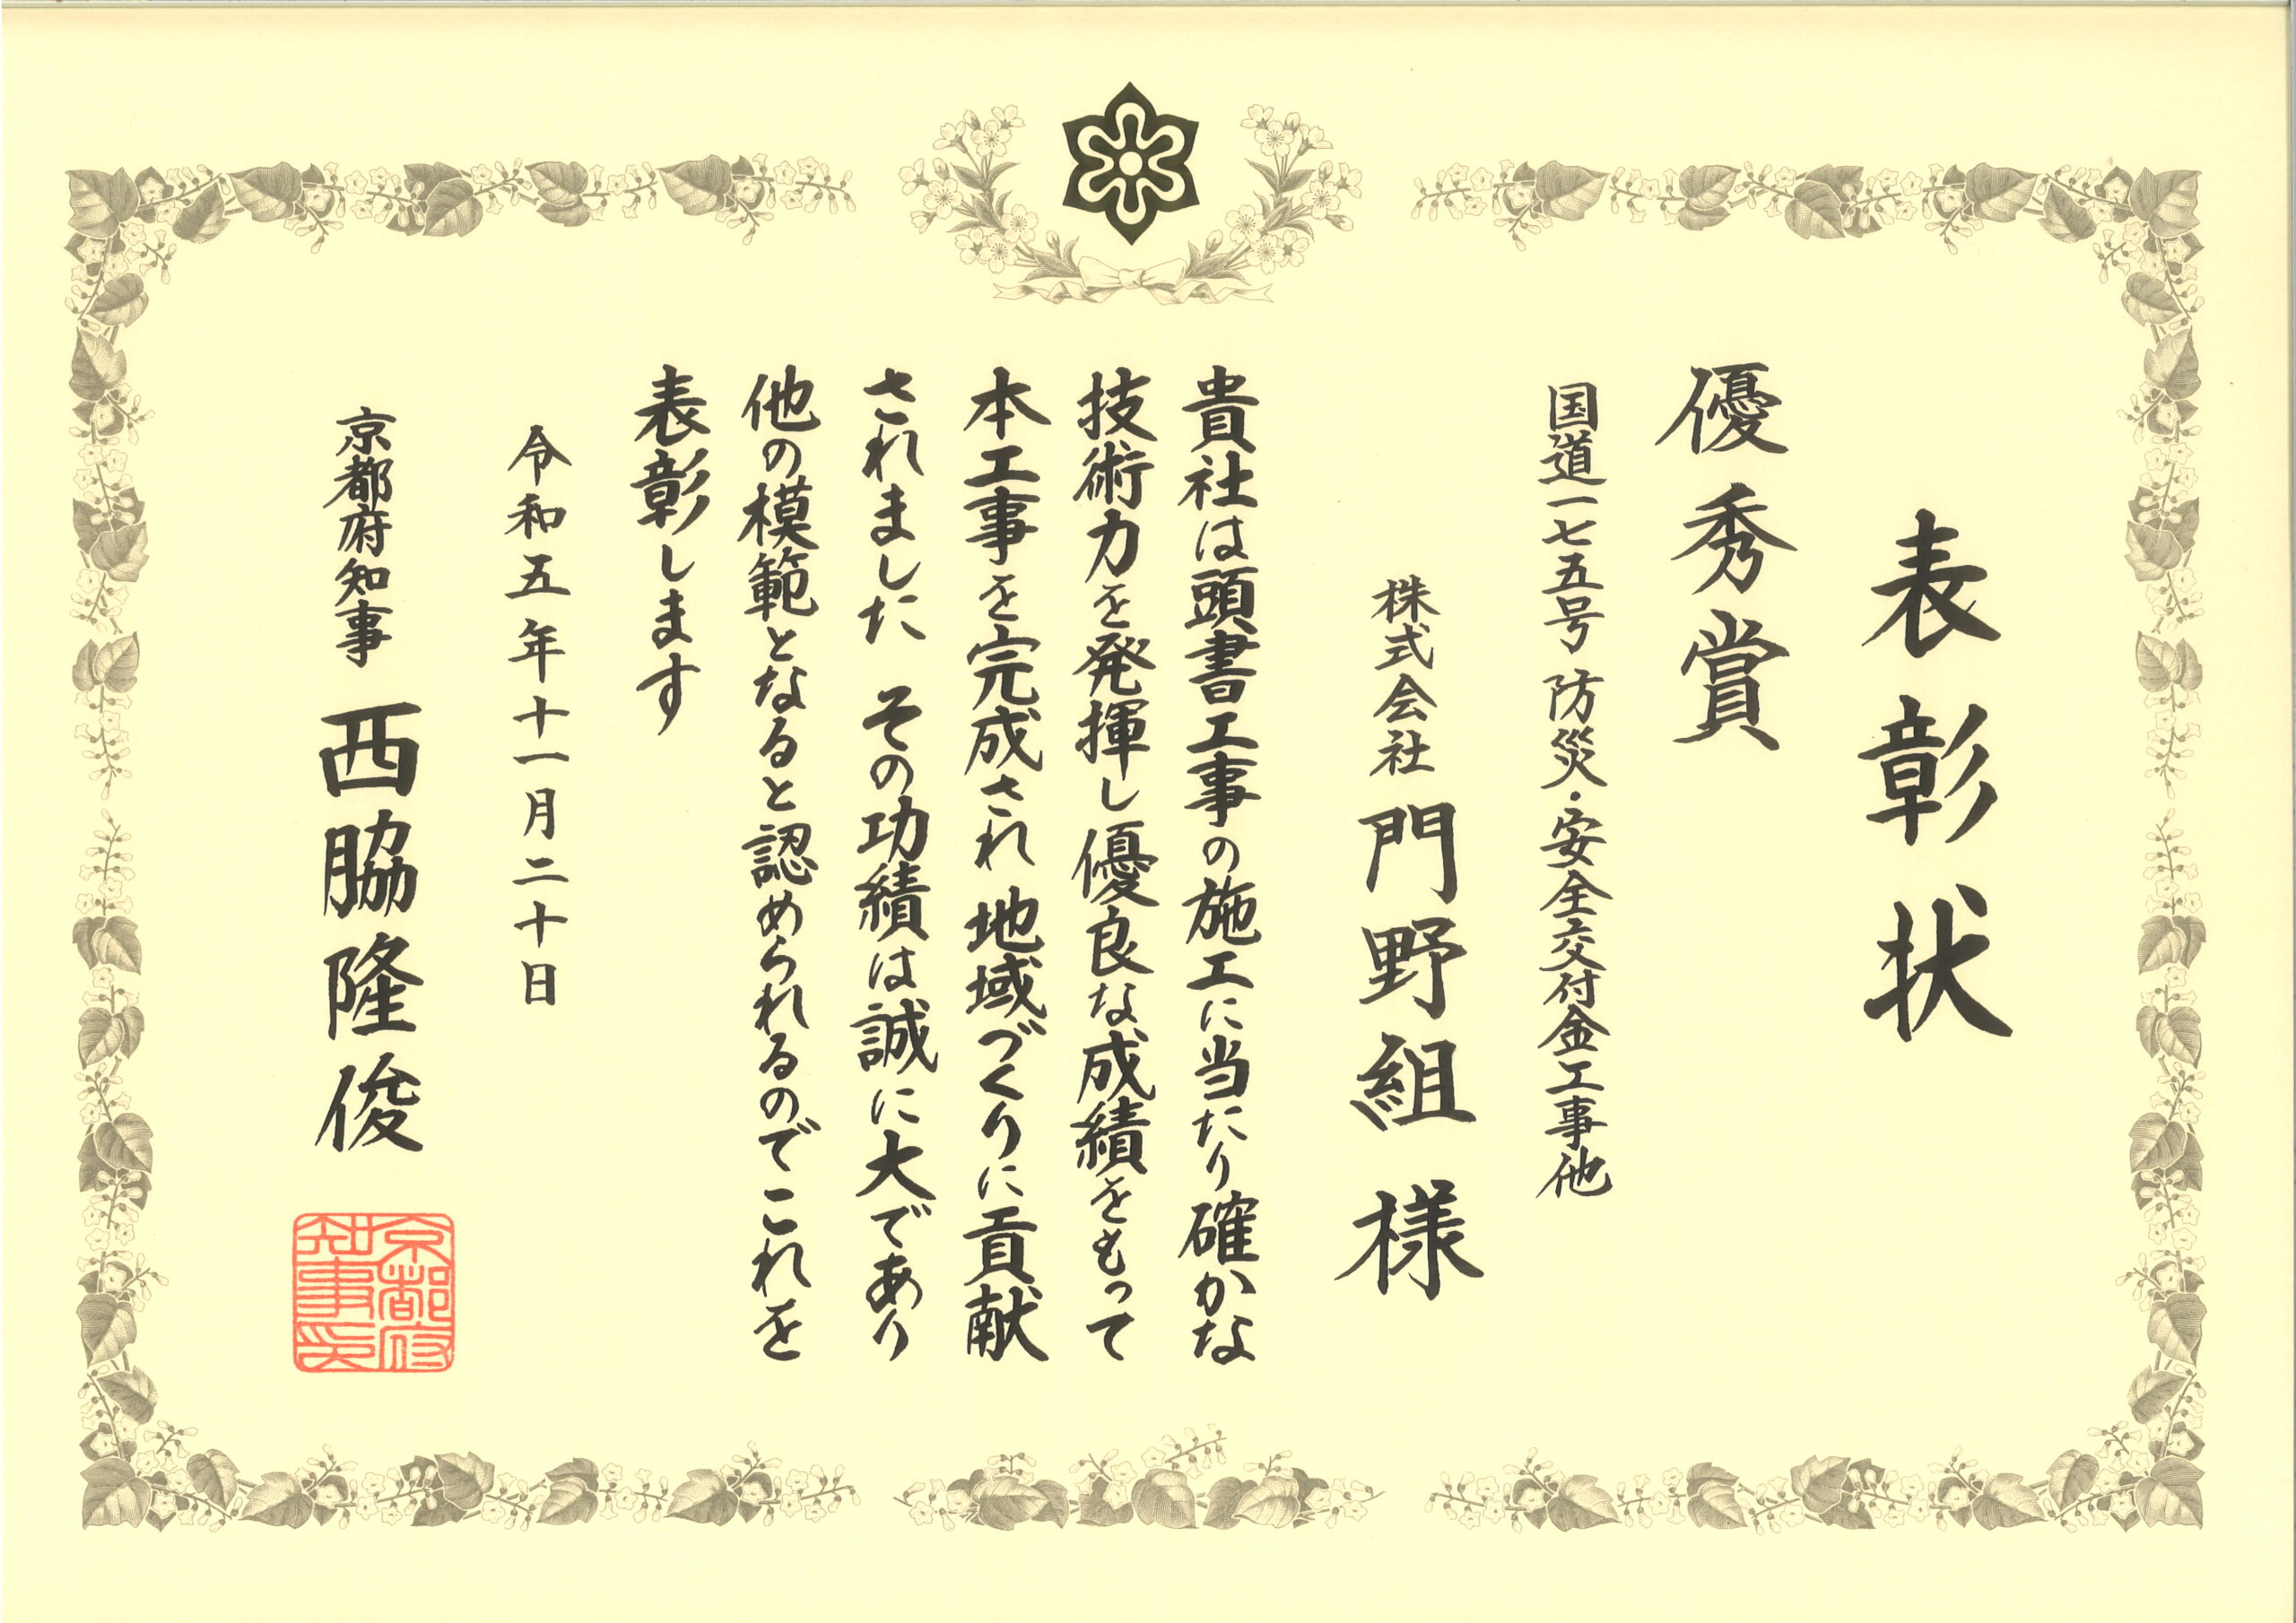 表彰状
優秀賞
国道一七五号 防災・安全交付金工事他
株式会社 門野組 様
貴社は頭書工事の施工に当たり確かな
技術力を発揮し優良な成績をもって
本工事を完成され 地域づくりに貢献
されました その功績は誠に大であり
他の模範となると認められるのでこれを
表彰します
令和五年十一月二十日
京都府知事 西脇隆俊
京都府
知事印